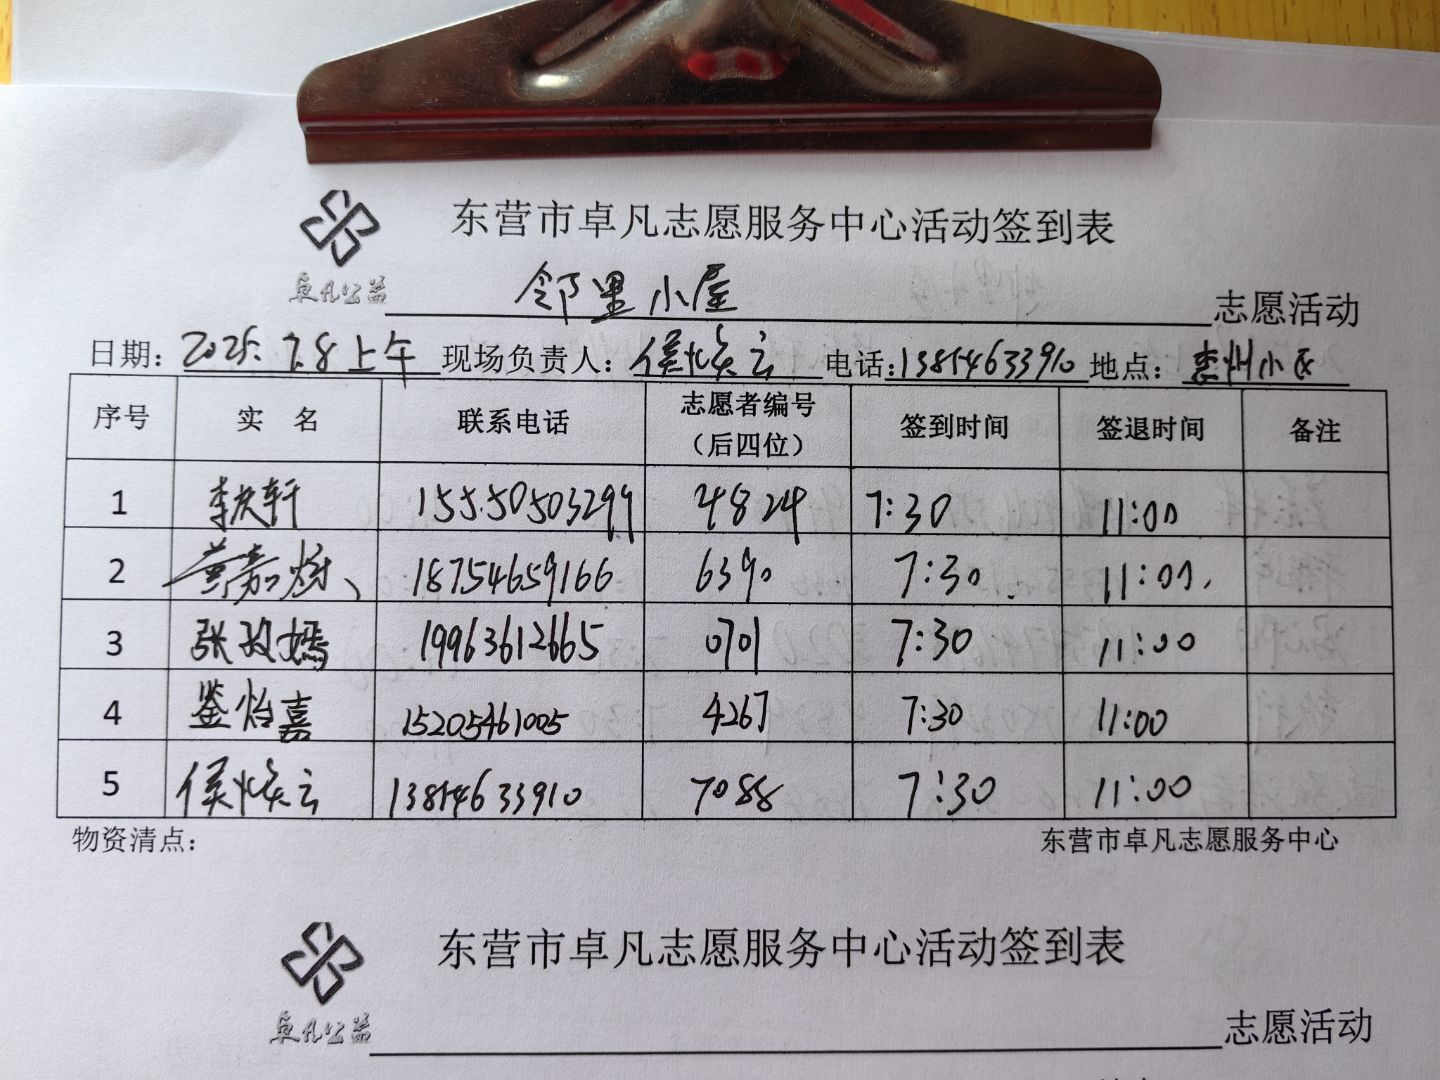 东营市卓凡志愿服务中心活动签到表
卓凡公益
邻里小屋 志愿活动
日期: 2025.7.8上午 现场负责人: 侯焕云 电话: 13814633910 地点: 惠州小区
序号 实 名 联系电话 志愿者编号（后四位） 签到时间 签退时间 备注
1 李庆轩 15550503299 4824 7:30 11:00
2 18754659166 6390 7:30 11:00
3 张玫嫣 19963612665 0701 7:30 11:00
4 鉴怡嘉 15205461005 4267 7:30 11:00
5 侯焕云 13814633910 7088 7:30 11:00
物资清点: 东营市卓凡志愿服务中心
东营市卓凡志愿服务中心活动签到表
卓凡公益
志愿活动